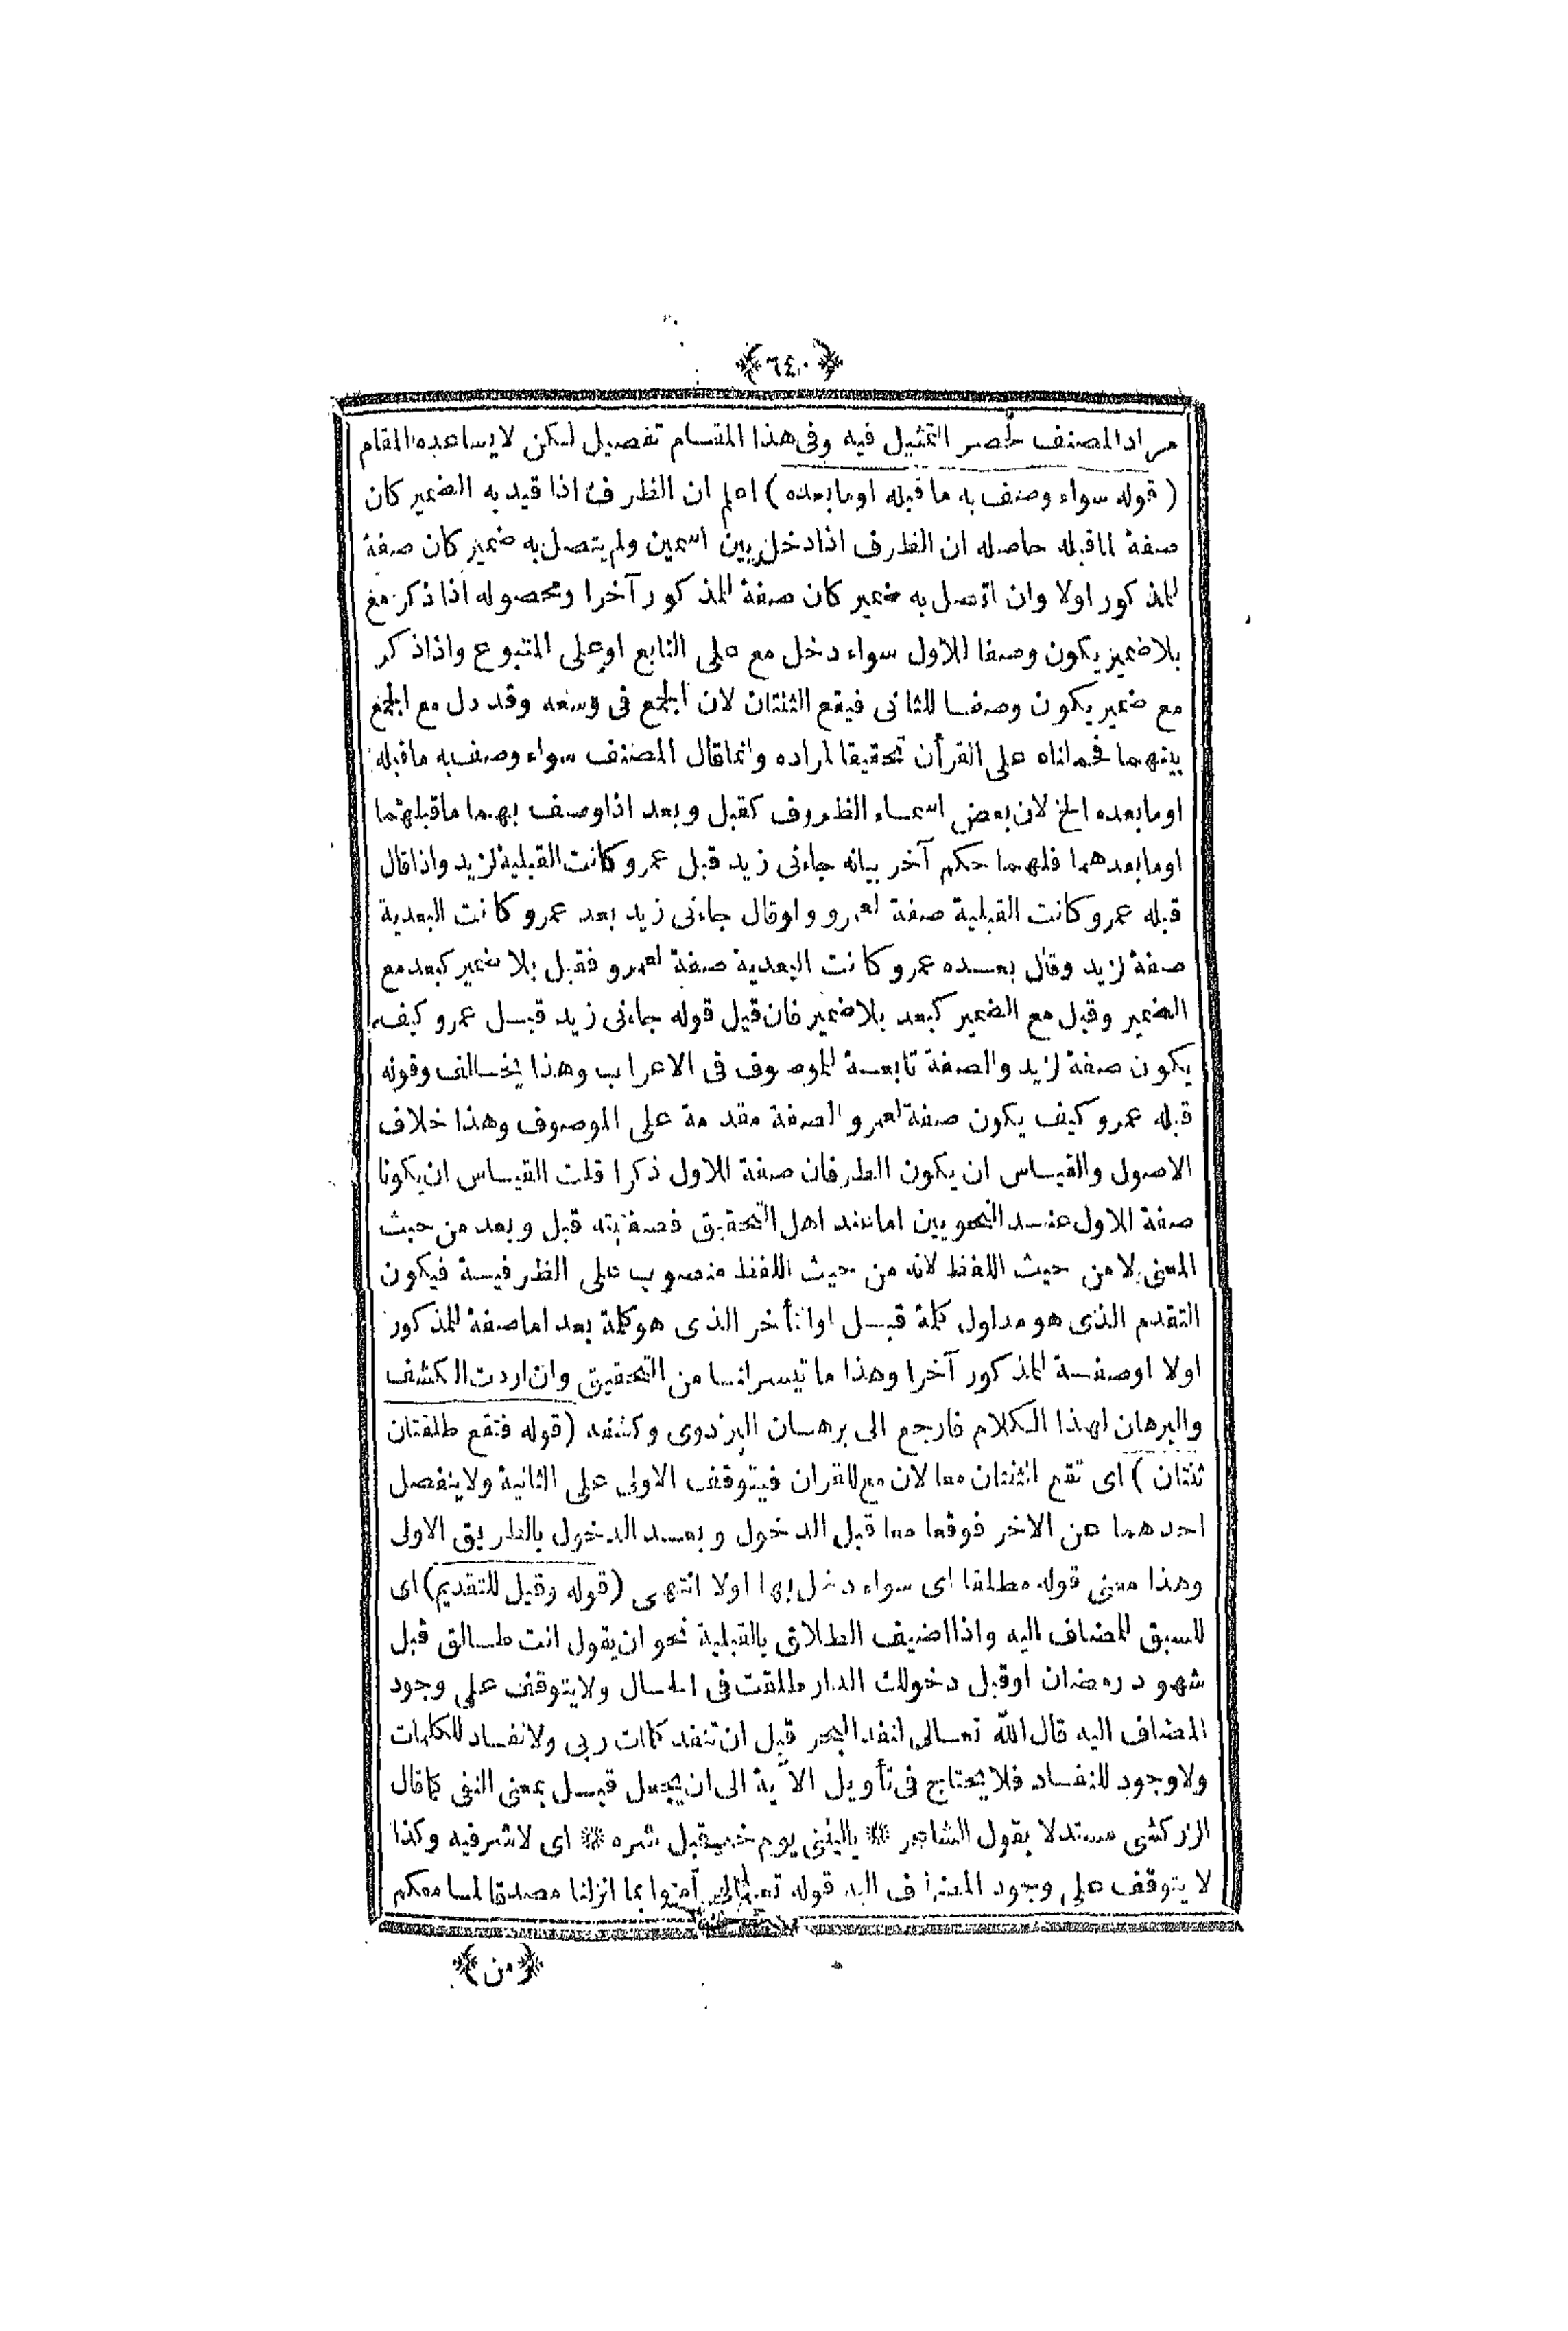 ﴿٦٤٠﴾
مراد المصنف لحصر التمثيل فيه وفى هذا المقام تفصيل لكن لا يساعده المقام
(قوله سواء وصف به ما قبله او ما بعده) اعلم ان الظرف اذا قيد به الضمير كان
صفة لما قبله حاصله ان الظرف اذا دخل بين اسمين ولم يتصل به ضمير كان صفة
للمذكور اولا وان اتصل به ضمير كان صفة للمذكور آخرا ومحصوله اذا ذكر مع
بلا ضمير يكون وصفا للاول سواء دخل مع على التابع او على المتبوع واذا ذكر
مع ضمير يكون وصفا للثانى فيقع الثنتان لان الجمع فى وسعه وقد دل مع الجمع
بينهما فحملناه على القرأن تحقيقا لمراده وانما قال المصنف سواء وصف به ما قبله
او ما بعده الخ لان بعض اسماء الظروف كقبل وبعد اذا وصف بهما ما قبلهما
او ما بعدهما فلهما حكم آخر بيانه جاءنى زيد قبل عمرو كانت القبلية لزيد واذا قال
قبله عمرو كانت القبلية صفة لعمرو ولو قال جاءنى زيد بعد عمرو كانت البعدية
صفة لزيد وقال بعده عمرو كانت البعدية صفة لعمرو فقبل بلا ضمير كبعد مع
الضمير وقبل مع الضمير كبعد بلا ضمير فان قيل قوله جاءنى زيد قبل عمرو كيف
يكون صفة لزيد والصفة تابعة للموصوف فى الاعراب وهذا يخالف وقوله
قبله عمرو كيف يكون صفة لعمرو الصفة مقدمة على الموصوف وهذا خلاف
الاصول والقياس ان يكون الطرفان صفة للاول ذكرا قلت القياس ان يكونا
صفة للاول عند النحويين اما عند اهل التحقيق فصفيته قبل وبعد من حيث
المعنى لا من حيث اللفظ لانه من حيث اللفظ منصوب على الظرفية فيكون
التقدم الذى هو مدلول كلمة قبل او التأخر الذى هو كلمة بعد اما صفة للمذكور
اولا او صفة للمذكور آخرا وهذا ما تيسر لنا من التحقيق وان اردت الكشف
والبرهان لهذا الكلام فارجع الى برهان البزدوى وكشفه (قوله فتقع طلقتان
ثنتان) اى تقع الثنتان معا لان مع للقران فيتوقف الاولى على الثانية ولا ينفصل
احدهما عن الاخر فوقعا معا قبل الدخول وبعد الدخول بالطريق الاولى
وهذا معنى قوله مطلقا اى سواء دخل بها اولا انتهى (قوله وقيل للتقديم) اى
للسبق للمضاف اليه واذا اضيف الطلاق بالقبلية نحو ان يقول انت طالق قبل
شهود رمضان او قبل دخولك الدار طلقت فى الحال ولا يتوقف على وجود
المضاف اليه قال الله تعالى لنفد البحر قبل ان تنفد كلمات ربى ولا نفاد للكلمات
ولا وجود للنفاد فلا يحتاج فى تأويل الآية الى ان يجعل قبل بمعنى النفى كما قال
الزركشى مستدلا بقول الشاعر ❊ ياليتنى يوم خير قبل شره ❊ اى لا شر فيه وكذا
لا يتوقف على وجود المضاف اليه قوله تعالى آمنوا بما انزلنا مصدقا لما معكم
﴿من﴾